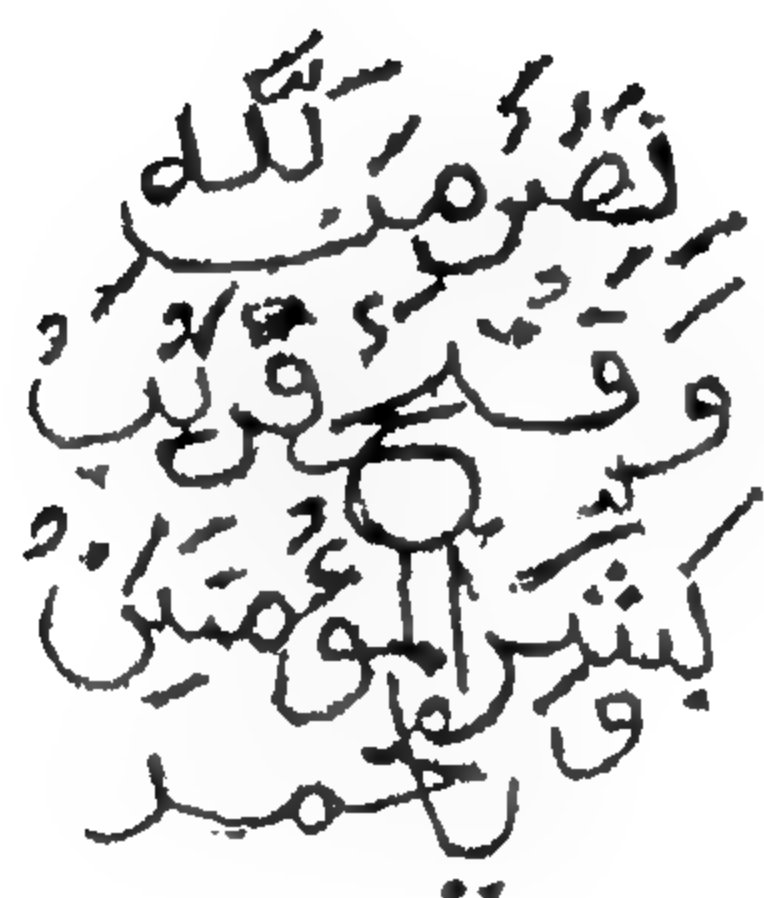 نصر من الله
وفتح قريب
وبشر المؤمنين
يا محمد